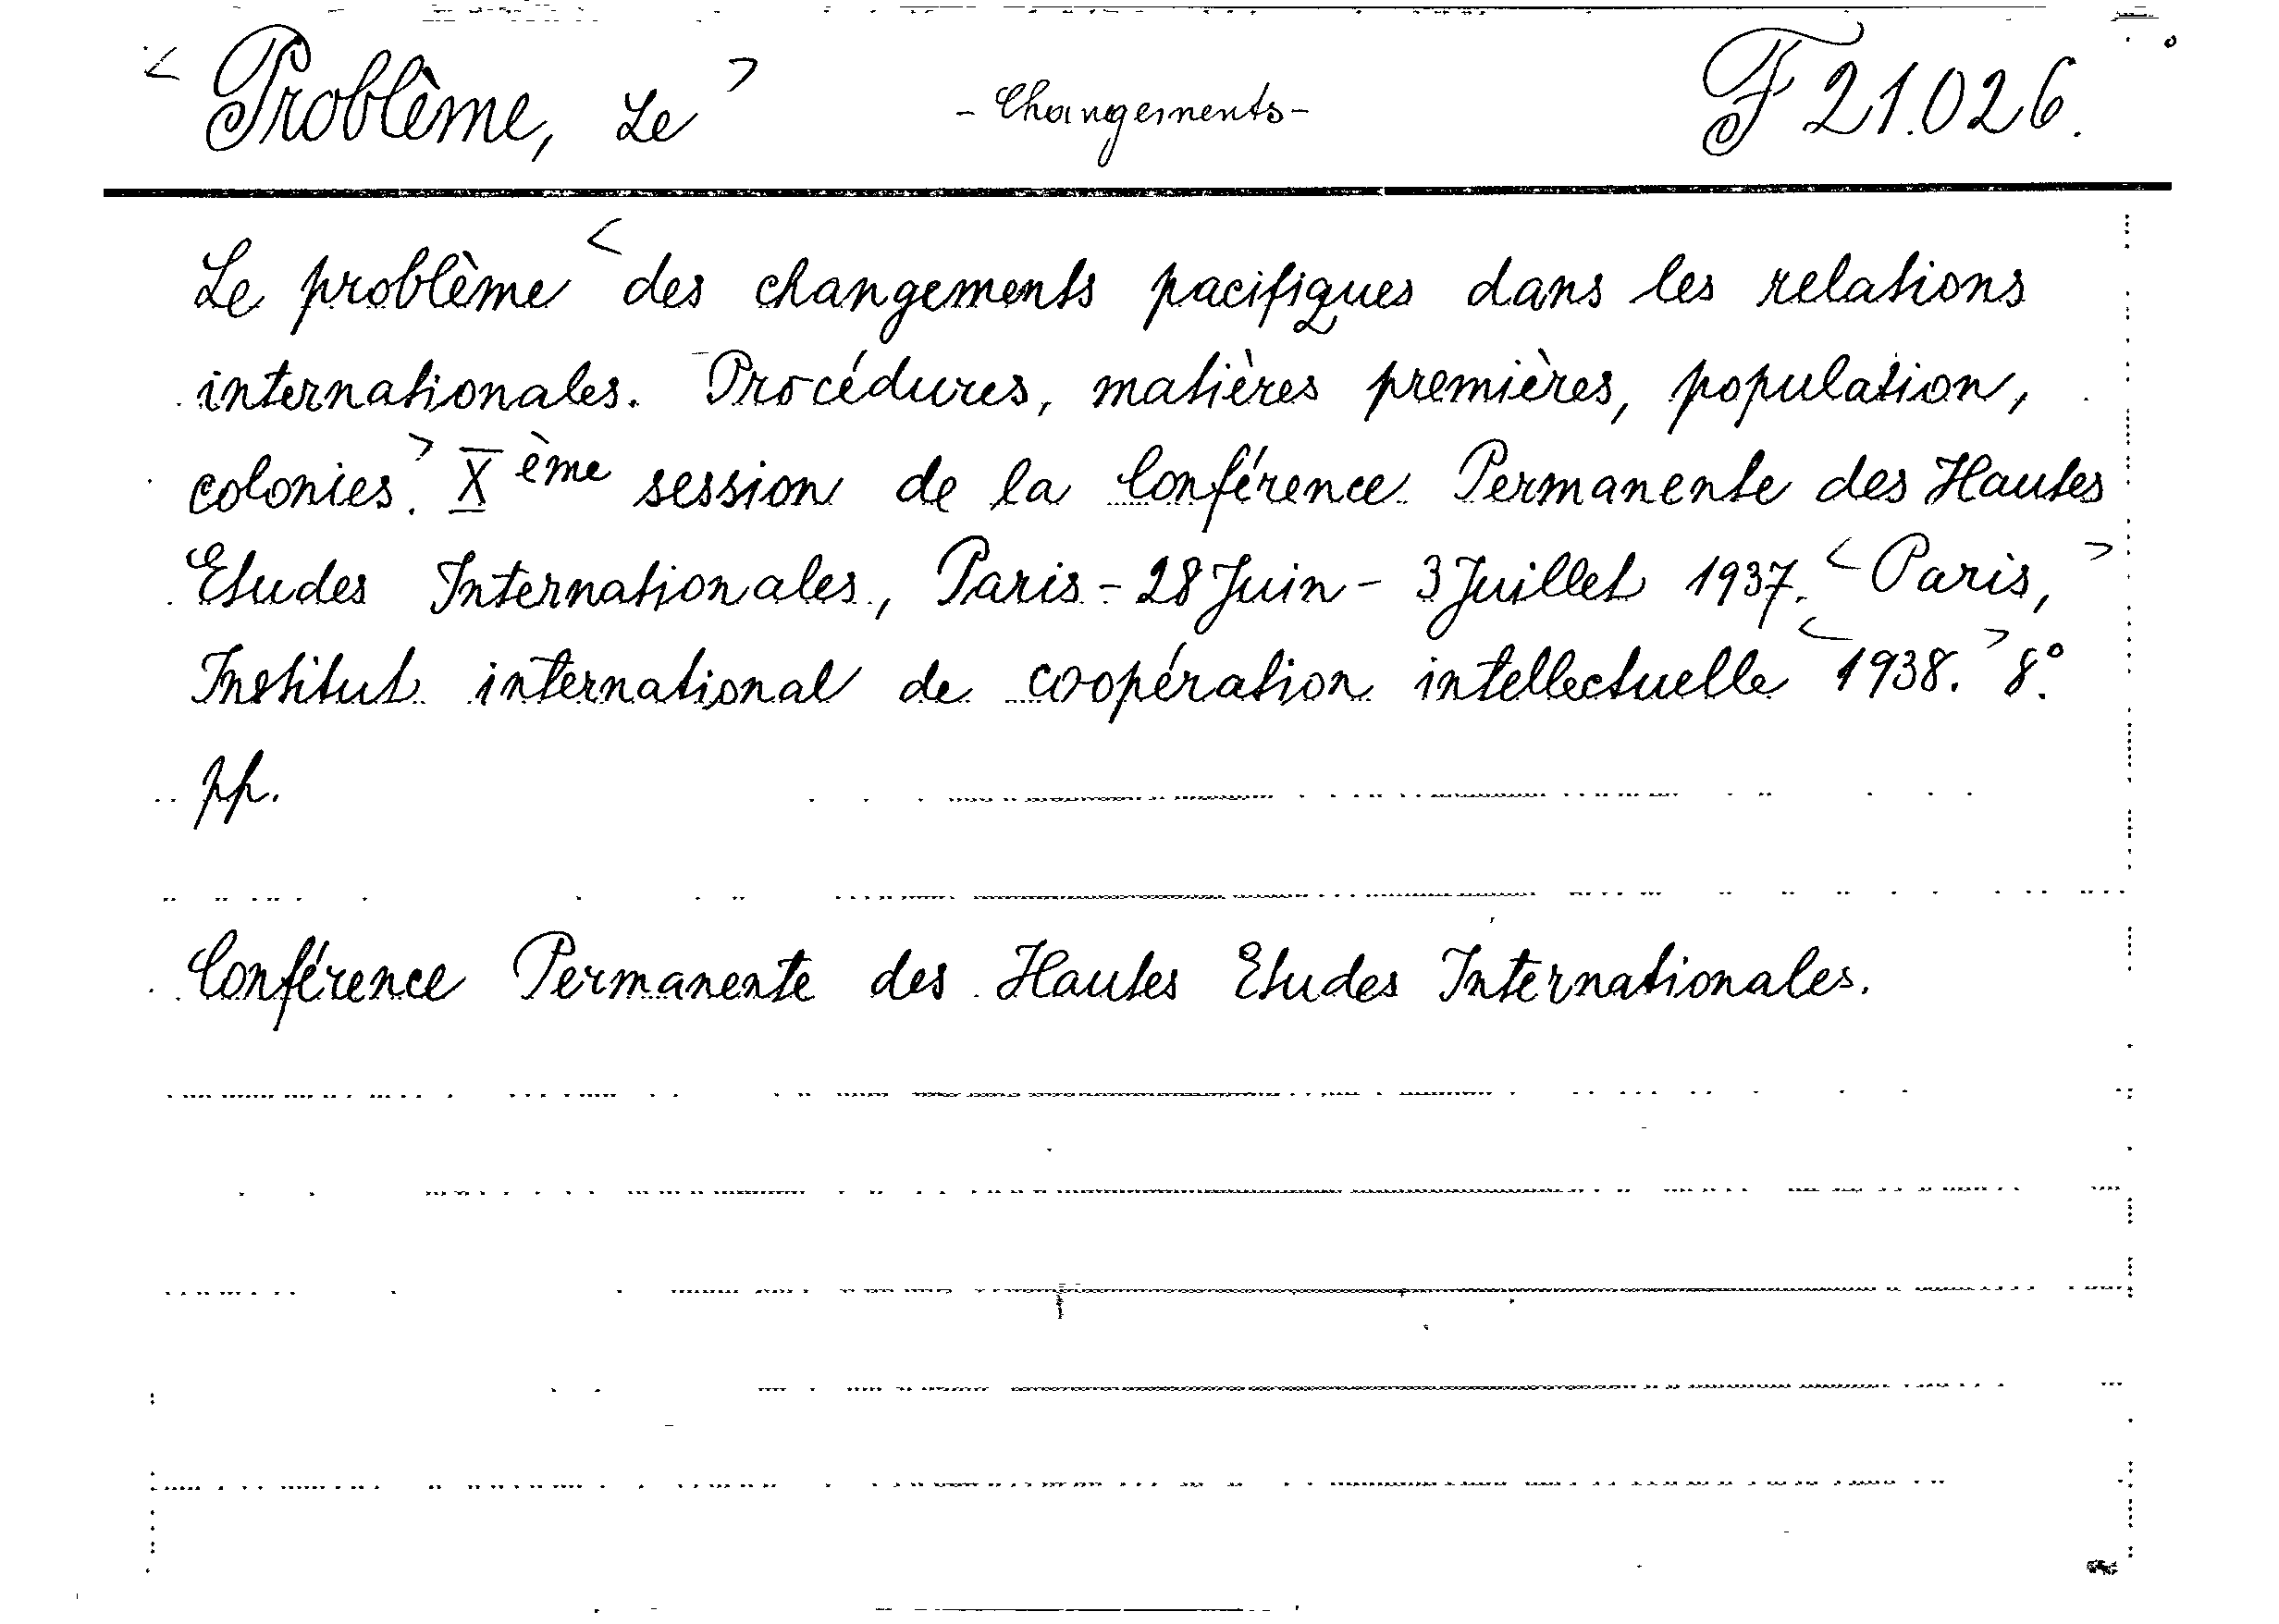 < Problème, Le > - Changements - F 21.026.
Le problème < des changements pacifiques dans les relations
internationales. Procédures, matières premières, population,
colonies. > Xème session de la Conférence Permanente des Hautes
Etudes Internationales, Paris - 28 Juin - 3 Juillet 1937. < Paris, >
Institut international de coopération intellectuelle < 1938. > 8°.
pp.
Conférence Permanente des Hautes Etudes Internationales.